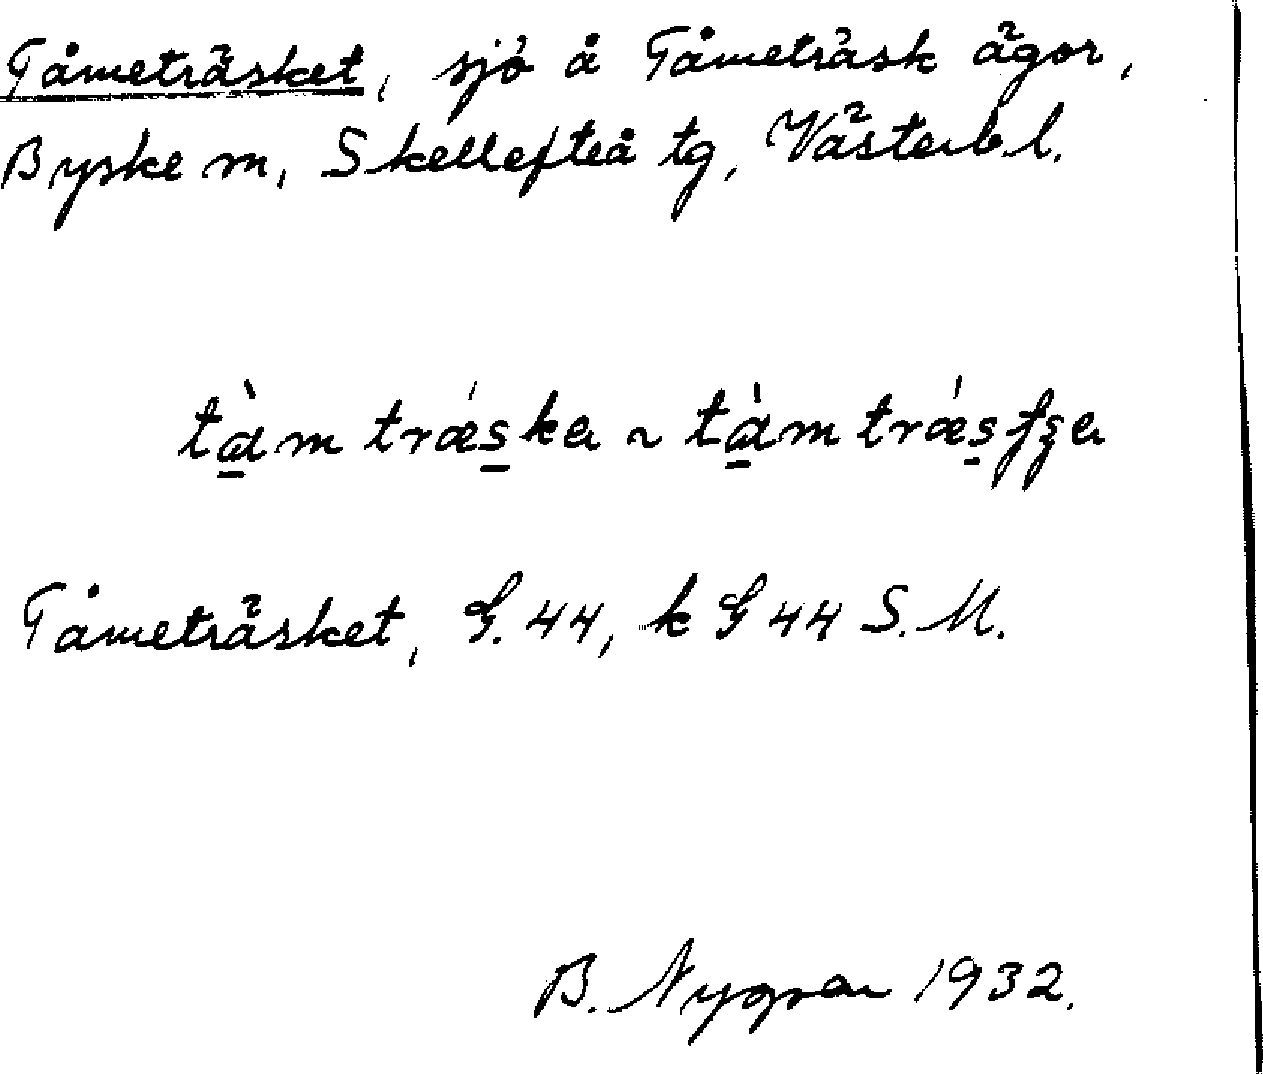 Tåmeträsket, sjö å Tåmeträsk ägor,
Byske sn, Skellefteå tg, Västerb. l.
tàm trǽska ~ tàm trǽsʃʒa
Tåmeträsket, G. 44, k G 44 S.M.
B. Nygren 1932.